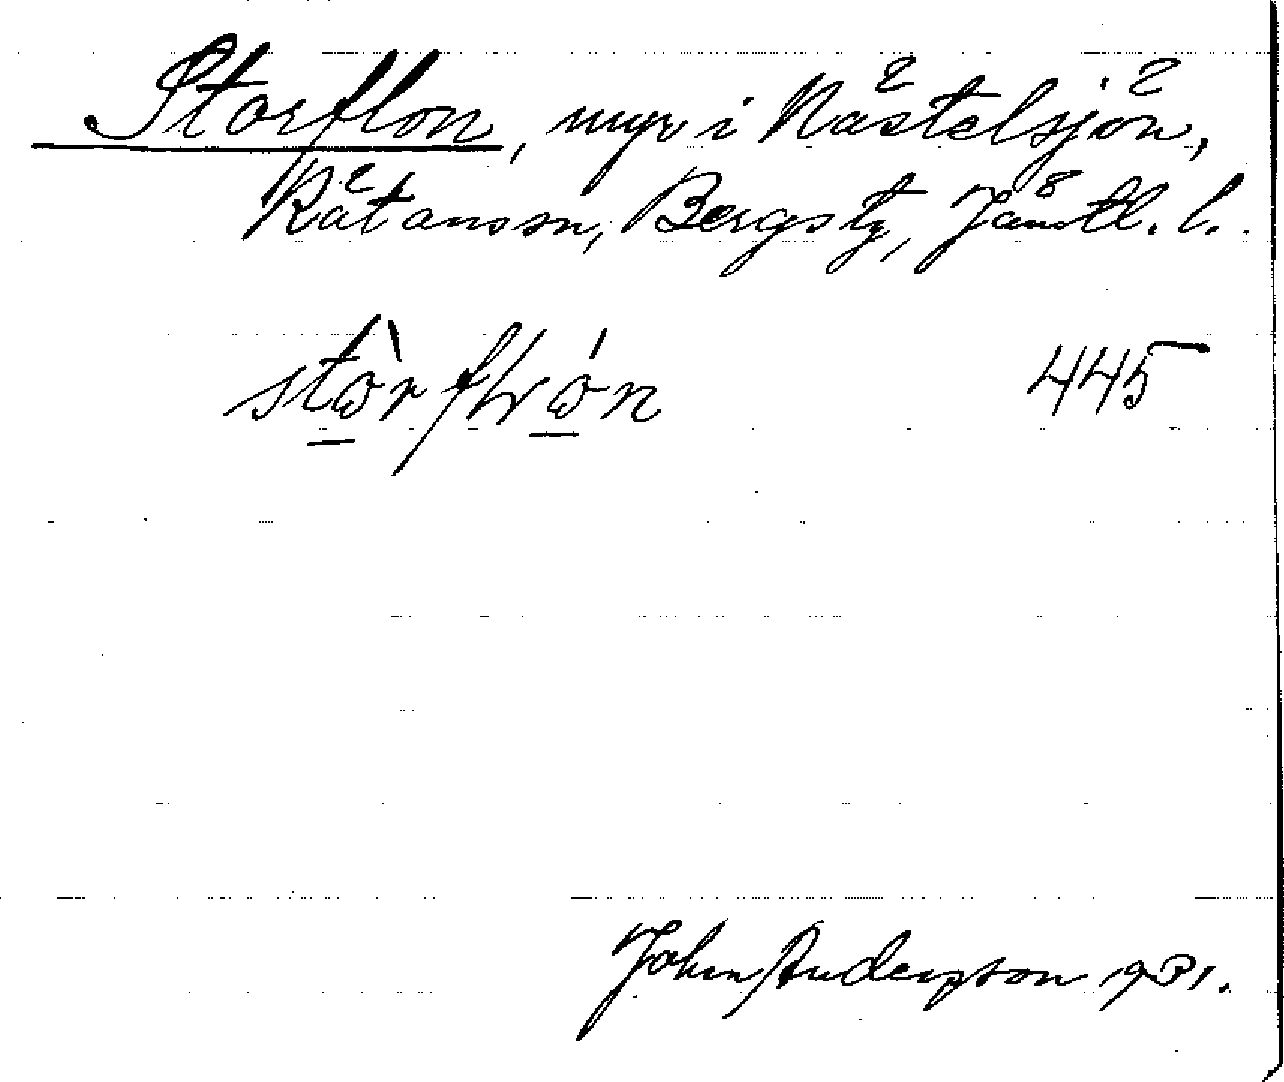 Storflon, myr i Nästelsjön,
Rätanssn, Bergstg, Jämtl. l.
445
John Andersson 1931.